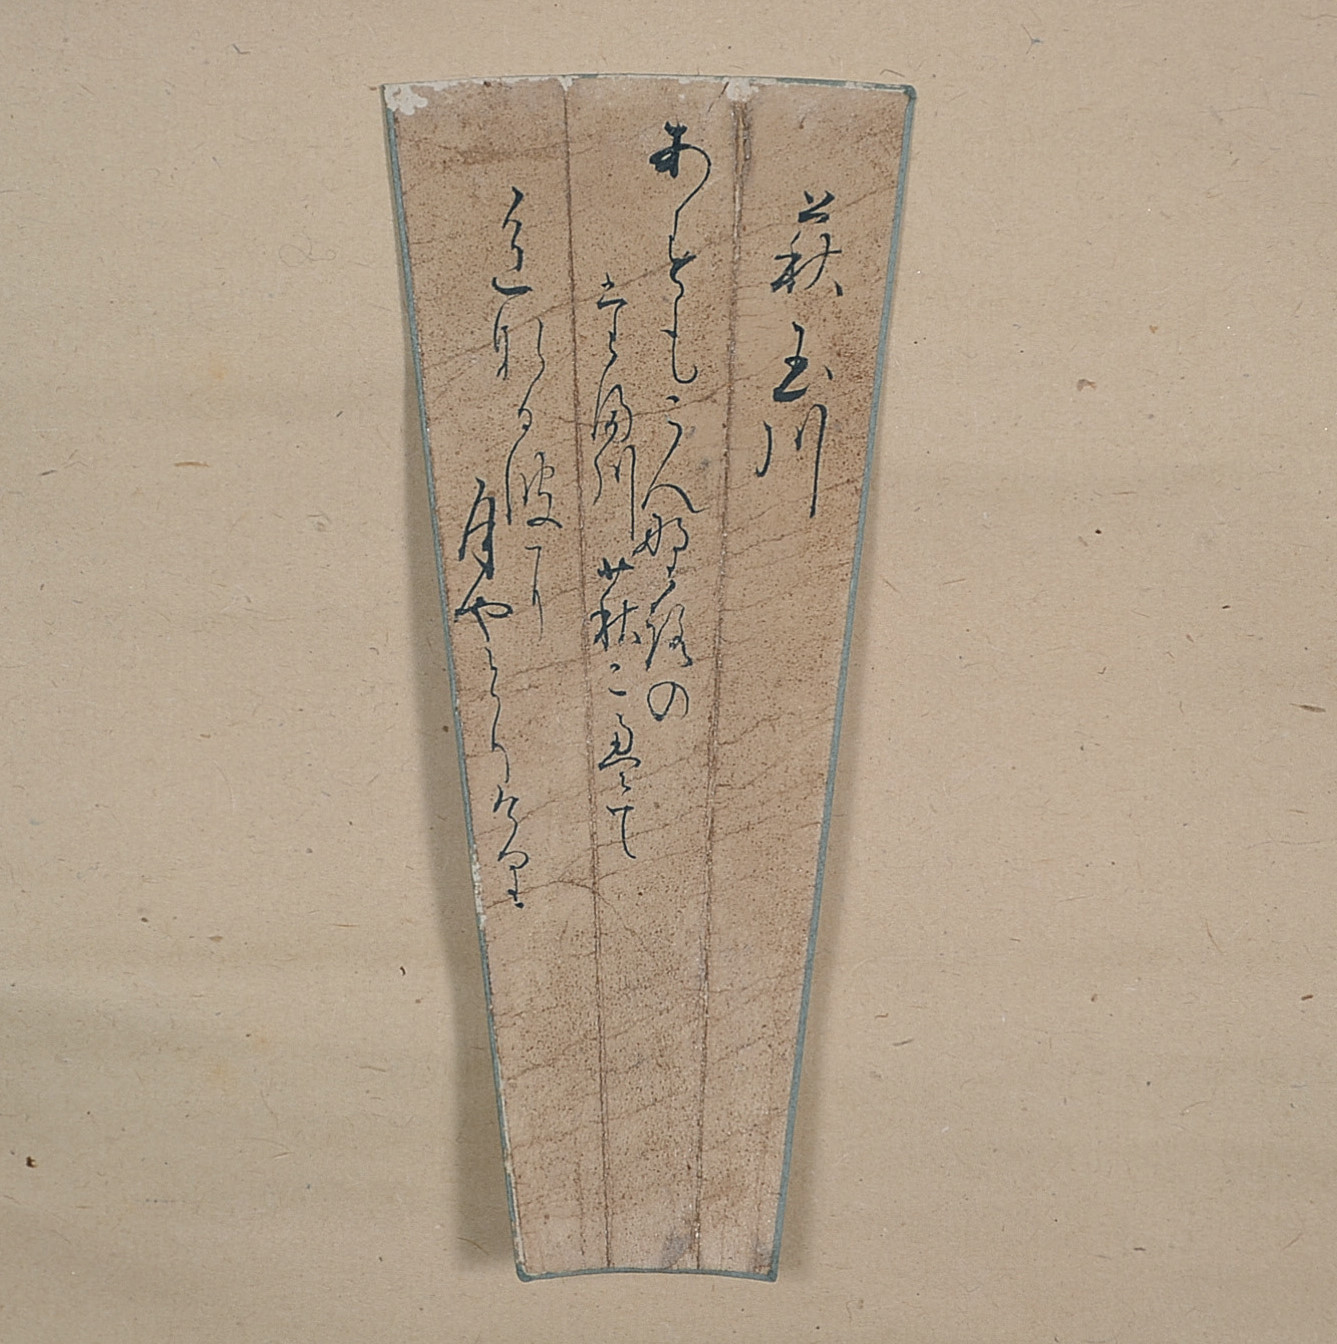 萩玉川
あすもこん野路の
たま川萩こゑて
色なる波に
月やとりけり